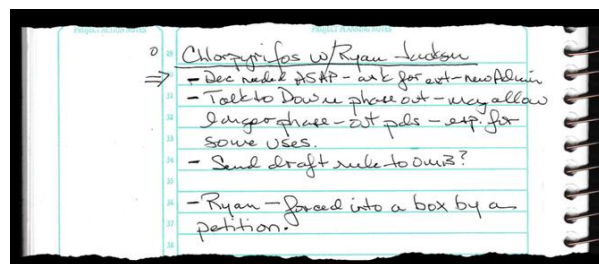 PROJECT ACTION NOTES PROJECT PLANNING NOTES
0 29 Chlorpyrifos w/Ryan Jackson
⇒ - Dec needed ASAP - ask for ext - new Admin
31 - Talk to Dow re phase out - may allow
32 longer phase-out pds - esp. for
33 some uses.
34 - Send draft rule to OMB?
35
36 - Ryan - forced into a box by a
37 petition.
38